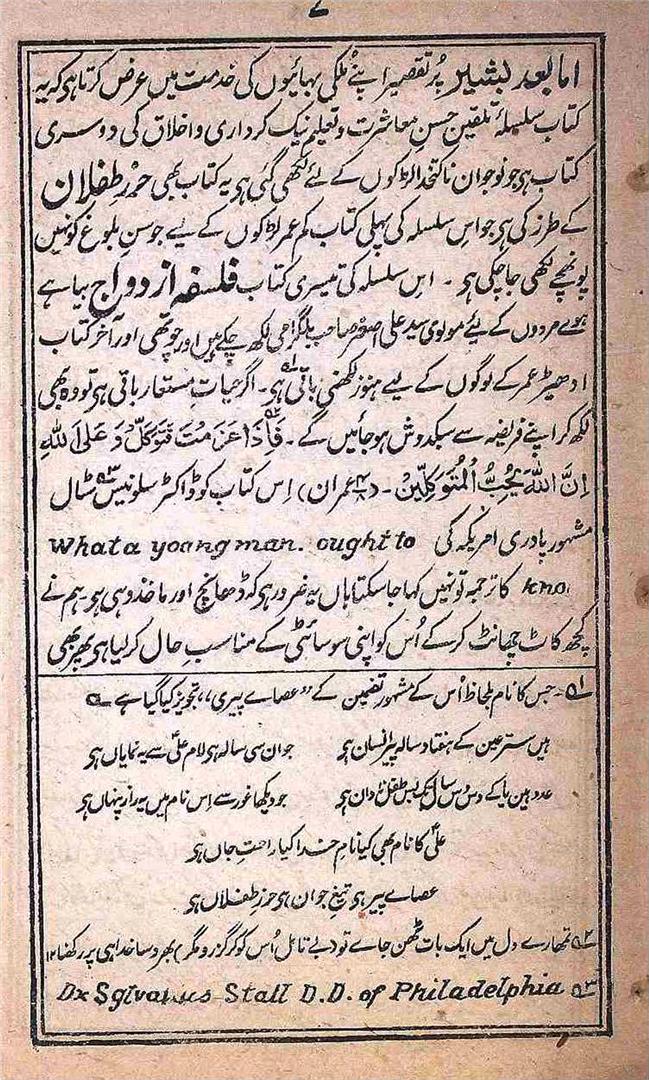 ۷
امابعد بشیر پُر تقصیر اپنے مُلکی بہائیوں کی خدمت میں عرض کرتا ہی کہ یہ
کتاب سلسلۂ تلقین حسنِ معاشرت و تعلیم نیک کرداری و اخلاق کی دوسری
کتاب ہی جو نوجوان ناکتخدا لڑکوں کے لئے لکھی گئی ہی یہ کتاب بھی حرز طفلان
کے طرز کی ہی جو اس سلسلہ کی پہلی کتاب کم عمر لڑکوں کے لیے جو سنِ بلوغ کو نہیں
پونہچے لکھی جا چکی ہی ۔ اس سلسلہ کی تیسری کتاب فلسفہ ازدواج بیاہے
ہوے مردوں کے لئے مولوی سید علی اصغر صاحب بلگرامی لکھ چکے ہیں اور چوتھی اور آخر کتاب
ادھیڑ عمر کے لوگوں کے لیے ہنوز لکھنی باقی ہی۔ ۱ اگر حیاتِ مستعار باقی ہی تو وہ بھی
لکھ کر اپنے فریضہ سے سبکدوش ہو جائیں گے ۔ فَاِذَا عَزَمْتَ فَتَوَكَّلْ عَلَى اللّٰهِ ۲
اِنَّ اللّٰهَ يُحِبُّ الْمُتَوَكِّلِيْنَ ۔ (عمران) اِس کتاب کو ڈاکٹر سلونیس سٹال ۳
مشہور پادری امریکہ کی What a yoong man. ought to
kno. کا ترجمہ تو نہیں کہا جا سکتا ہاں یہ ضرور ہی کہ ڈھانچ اور ماخذ وہی ہی ہم نے
کچھ کاٹ چھانٹ کر کے اُس کو اپنی سوسائٹی کے مناسب حال کر لیا ہی پھر بھی
۱۔ جس کا نام بلحاظ اُس کے مشہور تضمین کے ”عصاے پیری،، تجویز کیا گیا ہے
ہیں ستر عین کے ہفتاد سالہ پیر انسان ہی جوان سی سالہ ہی لام علیؑ سے یہ نمایاں ہی
عدد ہین یا کے دس دس سال تک بس طفل ناداں ہی جو دیکھا غور سے اِس نام میں یہ راز پنہاں ہی
علیؑ کا نام بھی کیا نامِ خدا کیا راحتِ جاں ہی
عصاے پیر ہی تیغِ جوان ہی حرزِ طفلاں ہی
۲ تمھارے دل میں ایک بات ٹھن جاے تو (بے تامل اُس کو کر گزرو مگر) بھروسا خدا ہی پر رکھنا ۱۲
۳ Dx Sglvanus Stall D.D. of Philadelphia